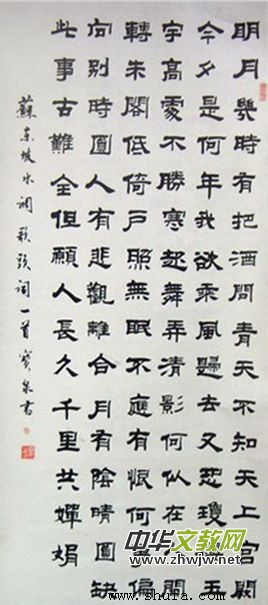 明月幾時有把酒問青天不知天上宮闕
今夕是何年我欲乘風歸去又恐瓊玉
宇高處不勝寒起舞弄清影何似在間
轉朱閣低倚戶照無眠不應有恨何事偏
向別時圓人有悲觀離合月有陰晴圓缺
此事古難全但願人長久千里共嬋娟
蘇東坡水調歌頭詞一首寶泉書
中华文教网
www.zhwjw.net
-www.shufa.com-